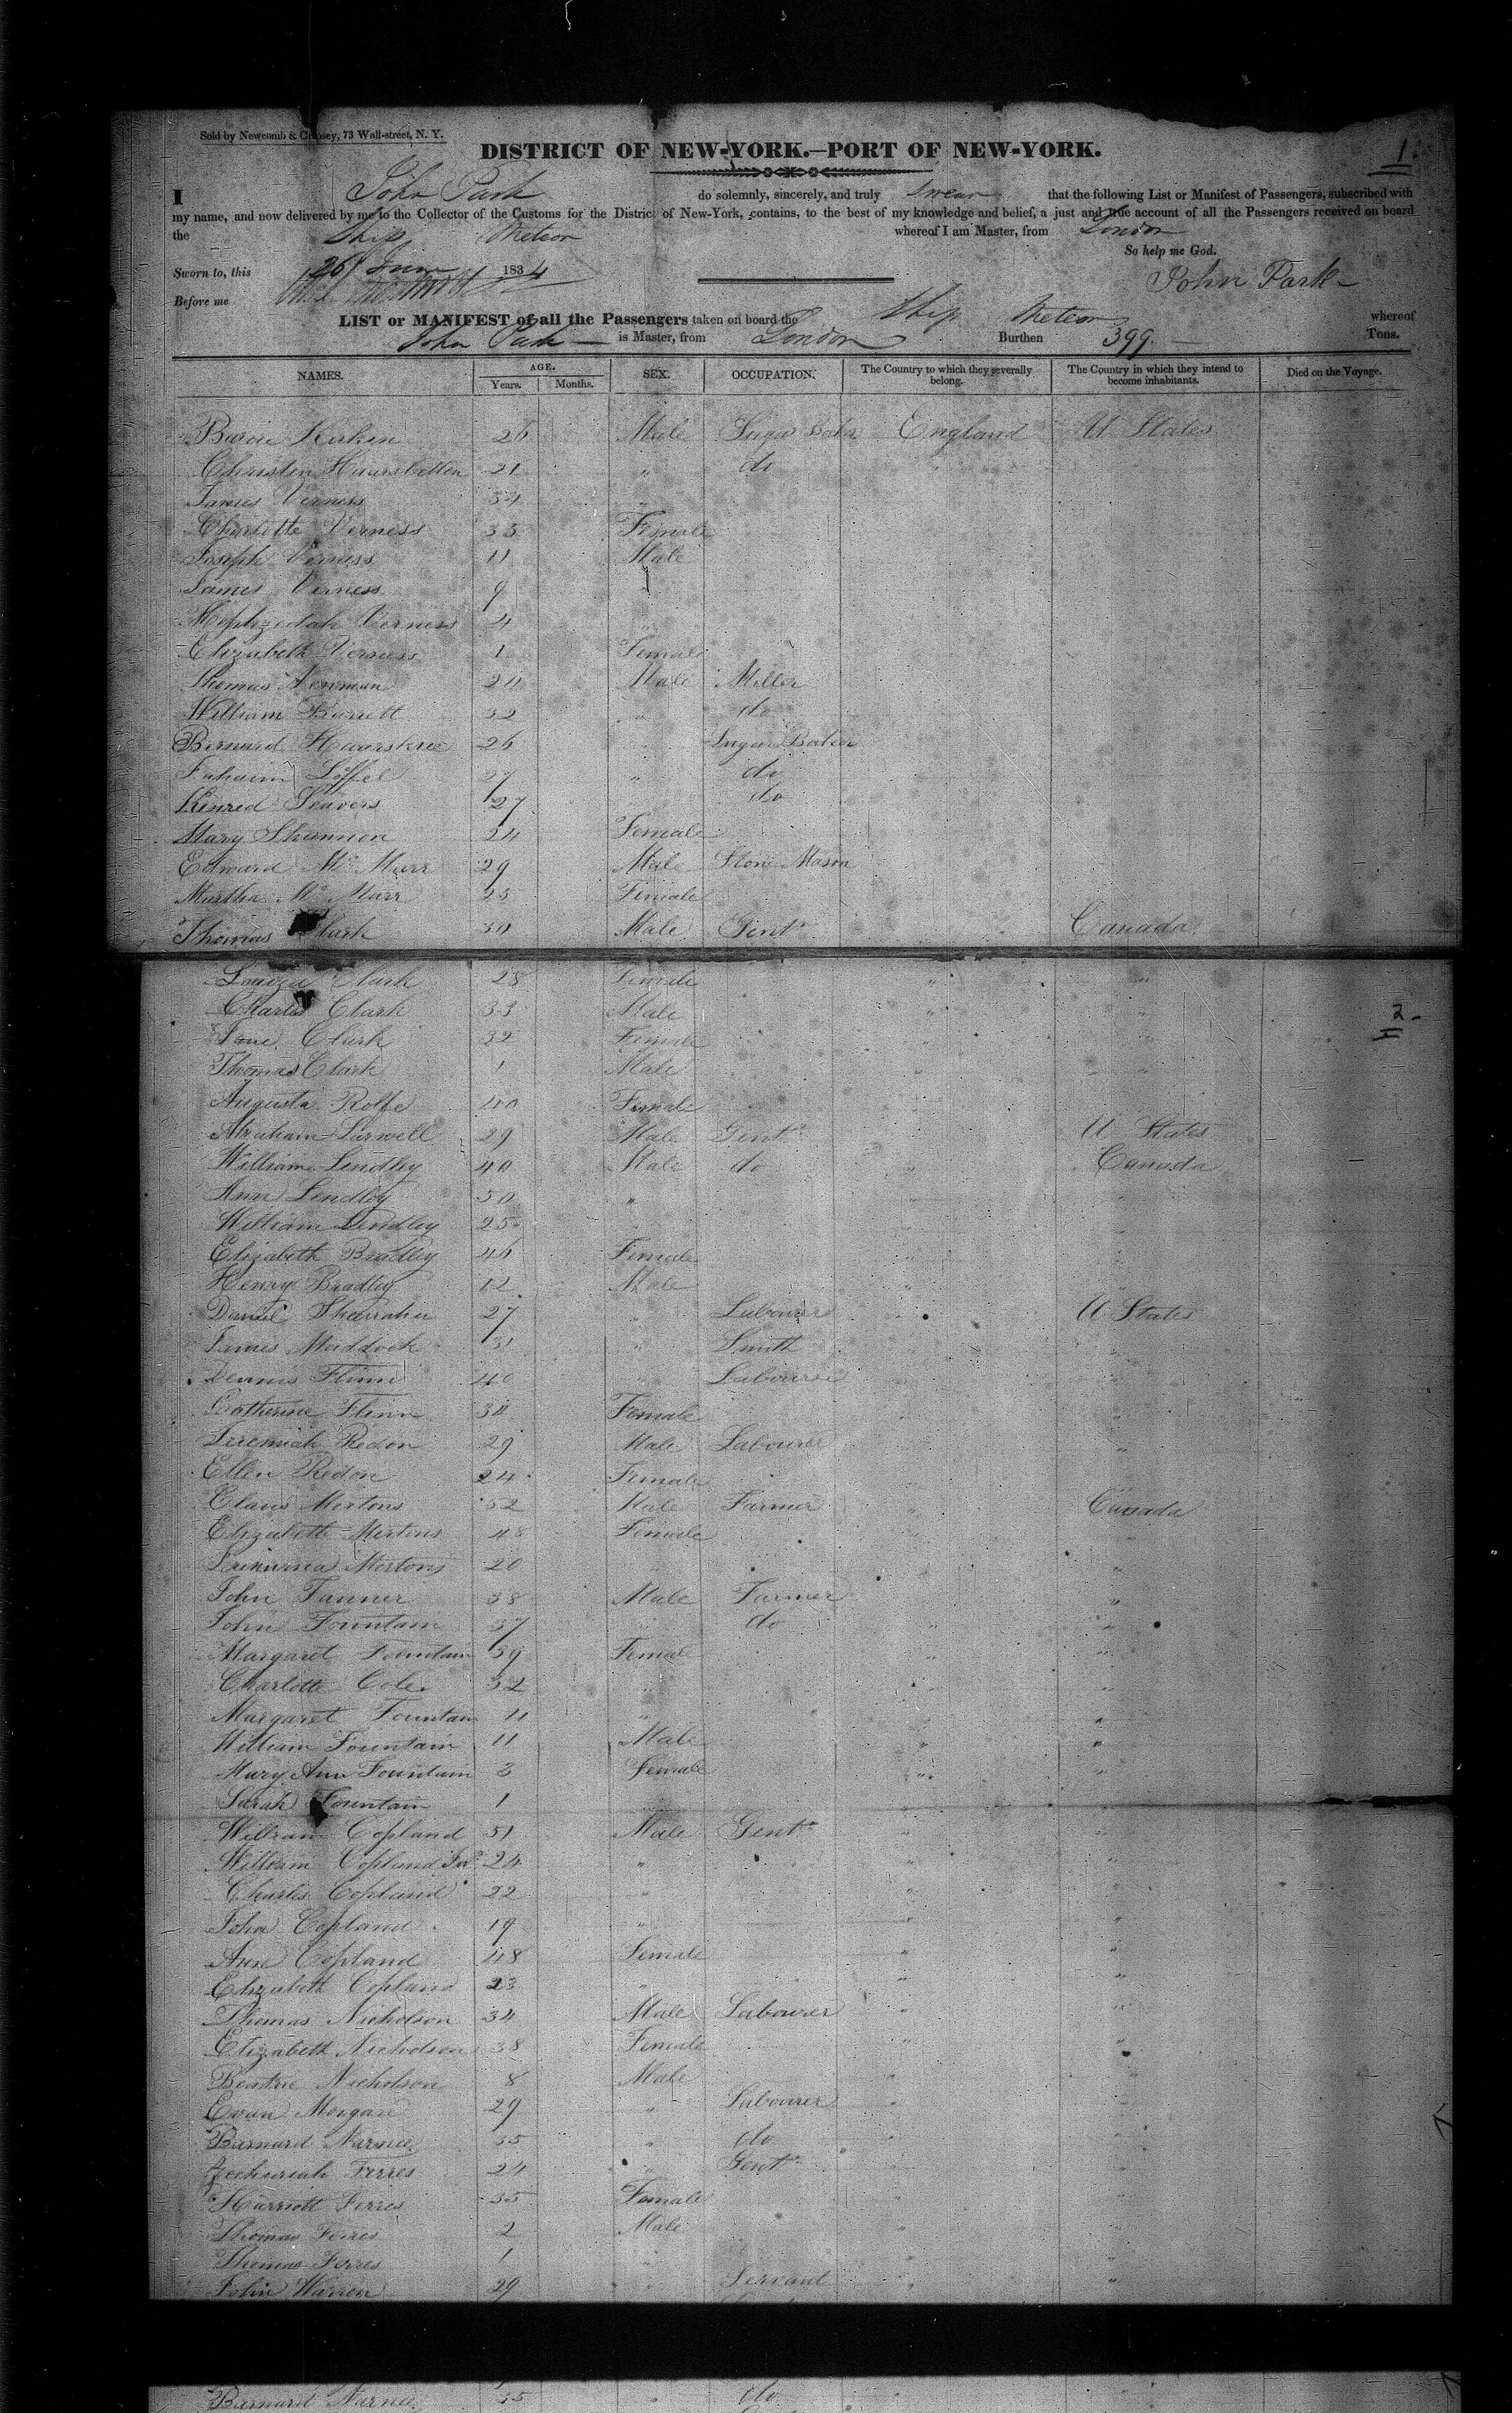 Sold by Newcomb & Cropsey, 73 Wall-street, N. Y.
DISTRICT OF NEW-YORK.—PORT OF NEW-YORK.
1.
I John Park do solemnly, sincerely, and truly swear that the following List or Manifest of Passengers, subscribed with
my name, and now delivered by me to the Collector of the Customs for the District of New-York, contains, to the best of my knowledge and belief, a just and true account of all the Passengers received on board
the Ship Meteor whereof I am Master, from London
So help me God.
Sworn to, this 26 June 1834
John Park
Before me
LIST or MANIFEST of all the Passengers taken on board the Ship Meteor whereof
John Park is Master, from London Burthen 399. Tons.
NAMES. AGE. SEX. OCCUPATION. The Country to which they severally belong. The Country in which they intend to become inhabitants. Died on the Voyage.
Years. Months.
26 Male Sugar Baker England U States
21 " do
James Verness 34
Charlotte Verness 35 Female
Joseph Verness 11 Male
James Verness 9
Verness 4
Elizabeth Verness 1 Female
Thomas Newman 20 Male Miller
William Barrett 32 " do
Bernard 26 Sugar Baker
Loffel 27 " do
Seavers 27 do
Mary Shannon 24 Female
Edward Mc Marr 29 Male Stone Mason
Martha Mc Marr 25 Female
Thomas Clark 30 Male Gent. Canada
Louiza Clark 28 Female " "
Charles Clark 33 Male "
2
Jane Clark 32 Female "
Thomas Clark 1 Male "
Augusta Rolfe 40 Female
Abraham Larwell 29 Male Gent. U States
William Lindley 40 Male do " Canada
Ann Lendley 30 "
William Lendley 25
Elizabeth Bradley 46 Female
Henry Bradley 12 Male
Daniel 27 " Labourer U States
James Maddock 31 " Smith "
Dennis Flinn 40 " Labourer
Catherine Flinn 34 Female
Jeremiah Redon 29 Male Labourer "
Ellen Redon 24 Female
Claus Mertons 52 Male Farmer Canada
Elizabeth Mertons 48 Female "
Mertons 20 "
John Tanner 38 Male Farmer "
John Fountain 37 " do " "
Margaret Fountain 39 Female " "
Charlotte Cole 32 " " "
Margaret Fountain 11 " "
William Fountain 11 Male " "
Mary Ann Fountain 3 Female " "
Sarah Fountain 1
William Copland 51 Male Gent. " "
William Copland Jur. 24 " " "
Charles Copland 22 " " "
John Copland 19 " " "
Ann Copland 48 Female " "
Elizabeth Copland 23 " " "
Thomas Nicholson 34 Male Labourer " "
Elizabeth Nicholson 38 Female " "
Nicholson 8 Male "
Evan Morgan 29 " Labourer " "
Barnard 35 " do " "
Zechariah Ferres 24 " Gent. "
Harriott Ferres 35 Female " "
Thomas Ferres 2 Male " "
Thomas Ferres 1 " "
John Warren 29 " Servant " "
Barnard 35 " do